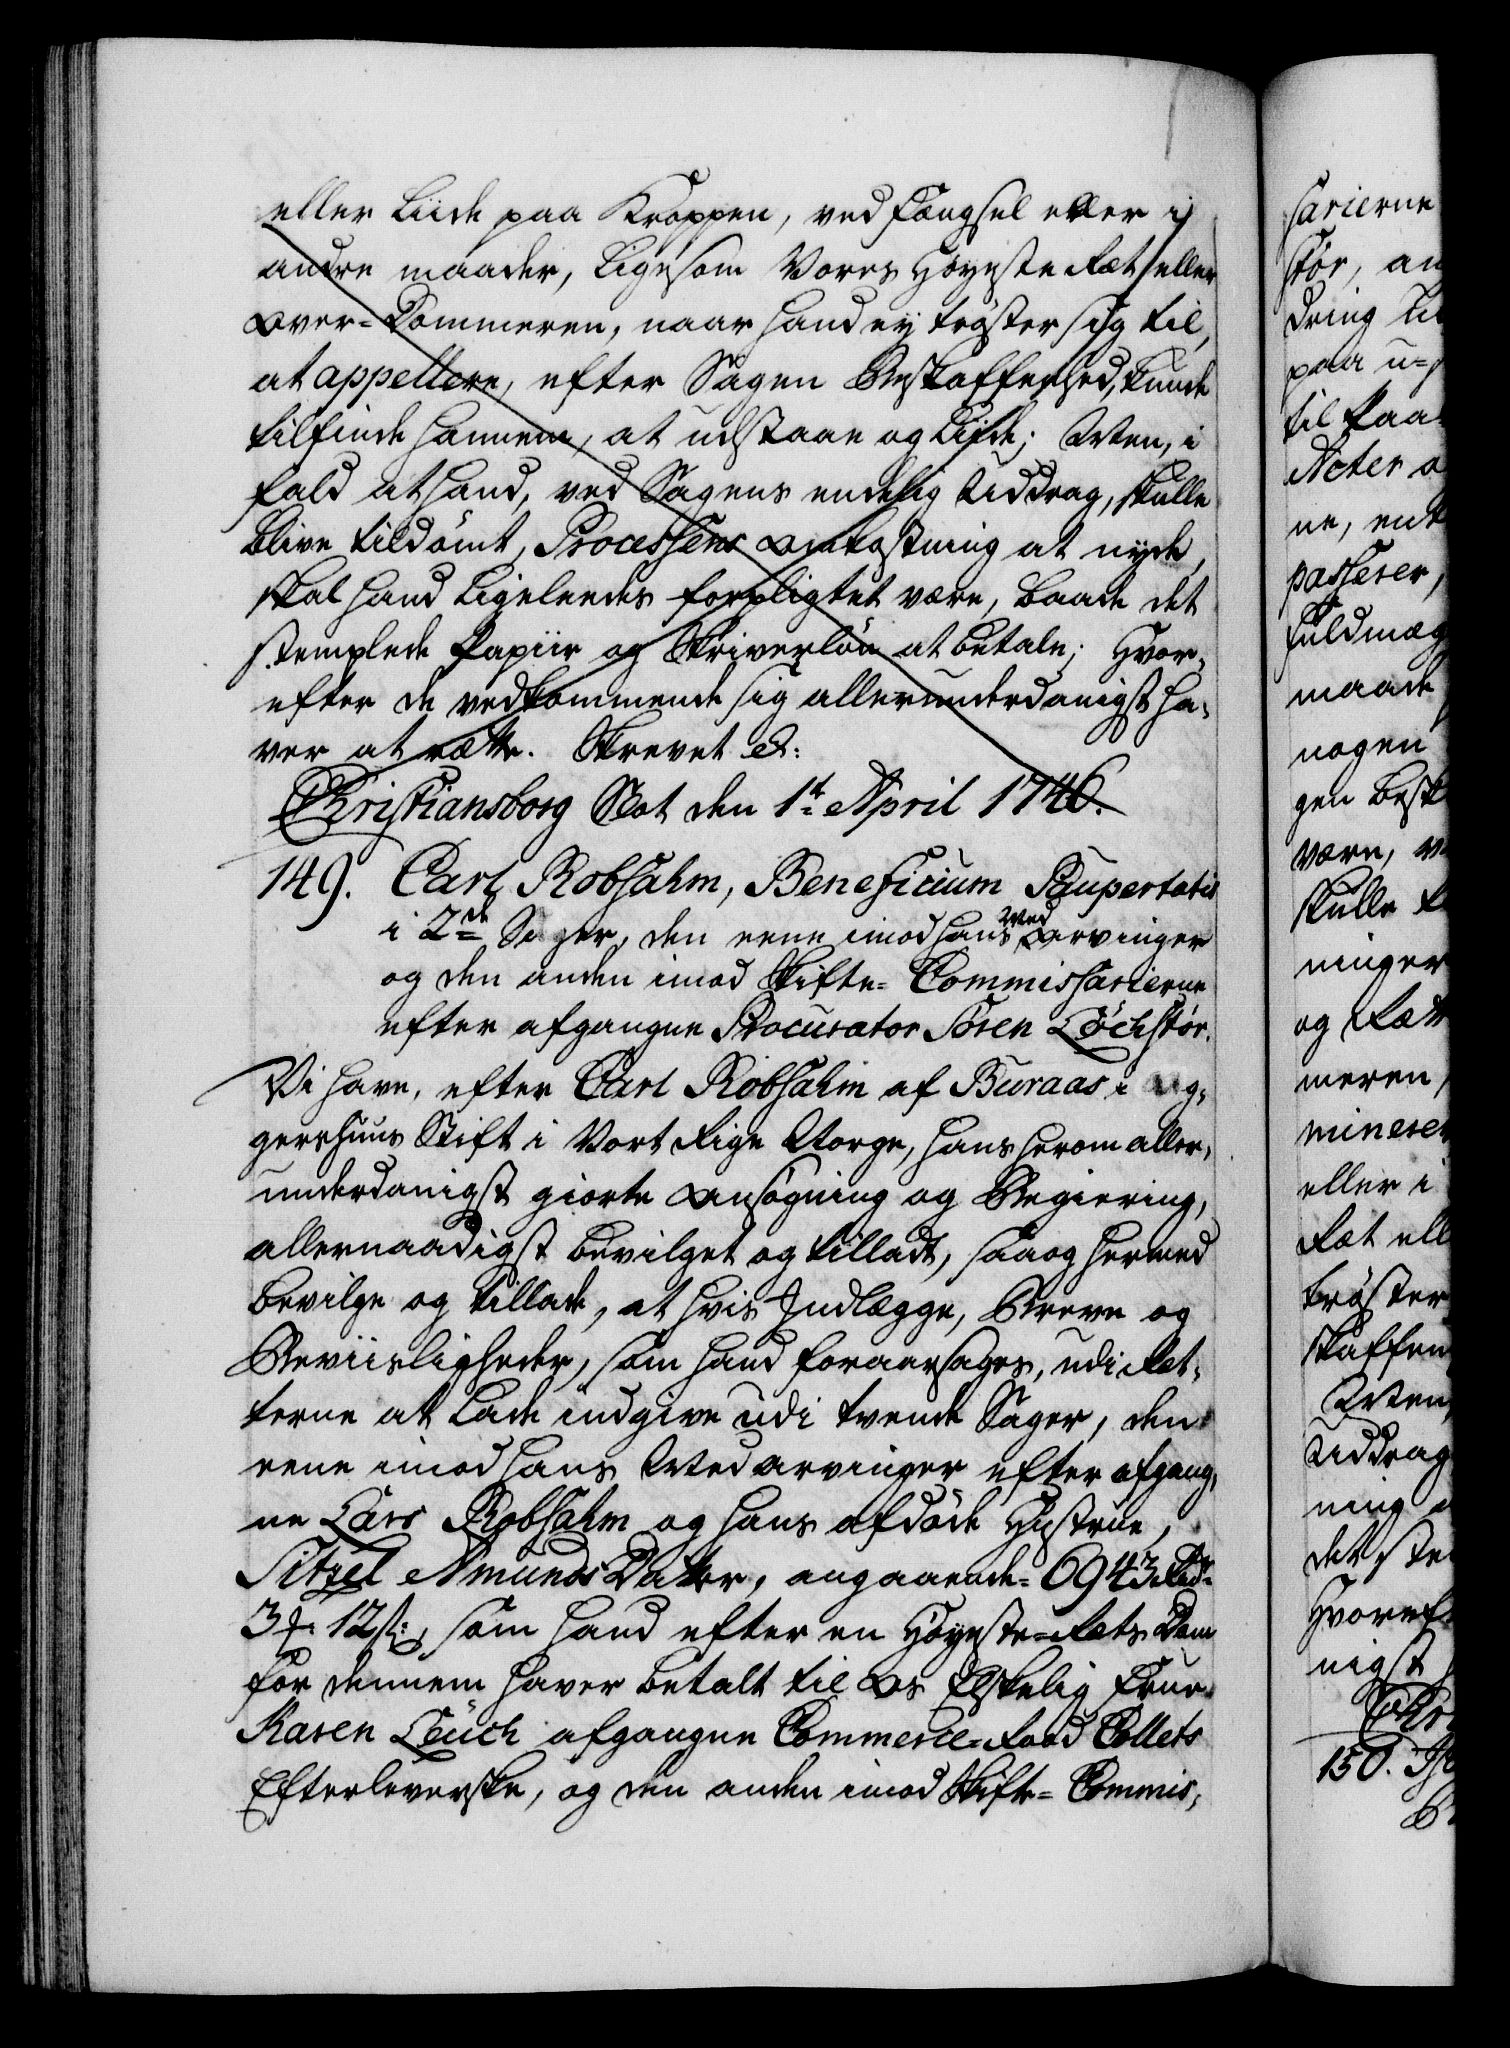 eller liide paa Kroppen, ved Fængsel eller i
andre maader, ligesom Vores Høyeste Ret eller
Over-Dommeren, naar hand ey trøster sig til,
at appellere, efter Sagen Beskaffenhed, kunde
tilfinde hannem, at udstaae og liide; Men, i
fald at hand, ved Sagens endelig Uddrag, skulle
blive tildømt, Processens Omkostning at nyde,
skal hand ligeleedes forpligtet være, baade det
stemplede Papiir og Skriverløn at betale; Hvor-
efter de vedkommende sig allerunderdanigst ha-
ver at rætte. Skrevet &:
Christiansborg Slot den 1te April 1746.
149. Carl Robsahm, Beneficium Paupertatis
i 2de Sager, den eene imod hans Med Arvinger
og den anden imod Skifte-Commissarierne
efter afgangne Procurator Sören Löchstör.
Vi have, efter Carl Robsahm af Buraas i Ag-
gershuus Stift i Vort Rige Norge, hans herom aller-
underdanigst giorte Ansøgning og Begiering,
allernaadigst bevilget og tilladt, saa og hermed
bevilge og tillade, at hvis Indlægge, Breve og
Beviisligheder, som hand foraarsages, udi Ret-
terne at lade indgive udi tvende Sager, den
eene imod hans Med Arvinger efter afgang-
ne Lars Robsahm og hans afdöde Hustrue,
Sitzel Amunds Datter, angaaende 6943 Rdr
3 ʒ 12 s:, som hand efter en Høyeste-Rets Dom
for dennem haver betalt til Os Elskelig Frue
Karen Leüch afgangne Commerce-Raad Collets
Efterleverske, og den anden imod Skifte-Commis-
sarierne
stör, an
dring til
paa u-
til Paa
Acter o
ne, ent
passerer,
fuldmæg
maade
nogen
gen besk
være, v
skulle
ninger
og Ræt
meren,
minerer
eller i
Ret ell
trøster
skaffen
Men,
Uddrag
ning
det ste
Hvoref
nigst
Chri
150.